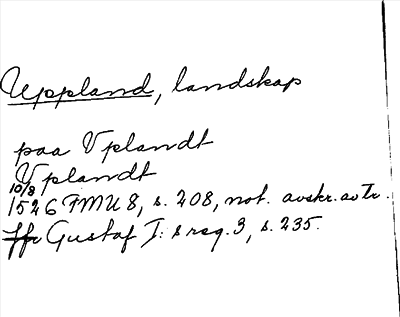 Uppland, landskap
paa Vplandt
Vplandt
10/8
1526 FMU 8, s. 208, not. avskr. av Tr.
Jfr Gustaf I:s reg. 3, s. 235.